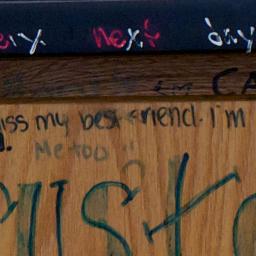 ery next day
← CA
iss my best friend. I'm
Me too :)